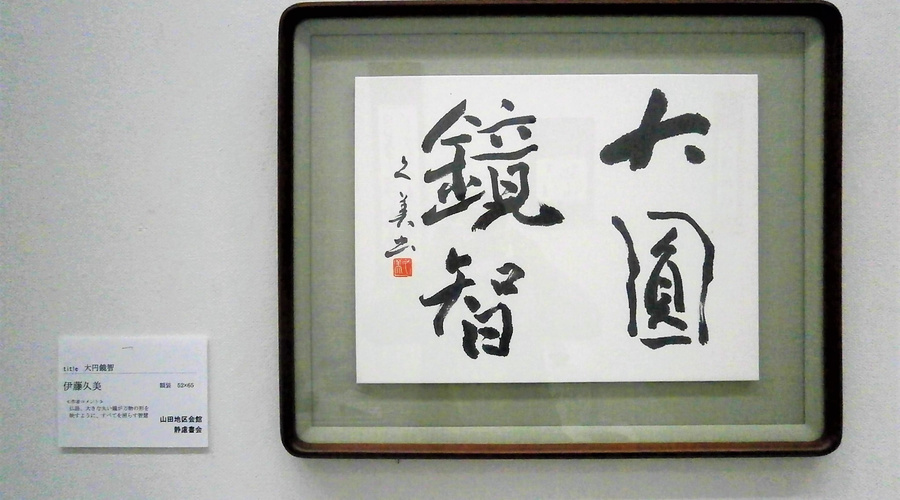 大圓
鏡智
久美書
title 大円鏡智
伊藤久美
額装 52×65
<作者コメント>
仏語。大きな丸い鏡が万物の形を
映すように、すべてを照らす智慧
山田地区会館
静慮書会